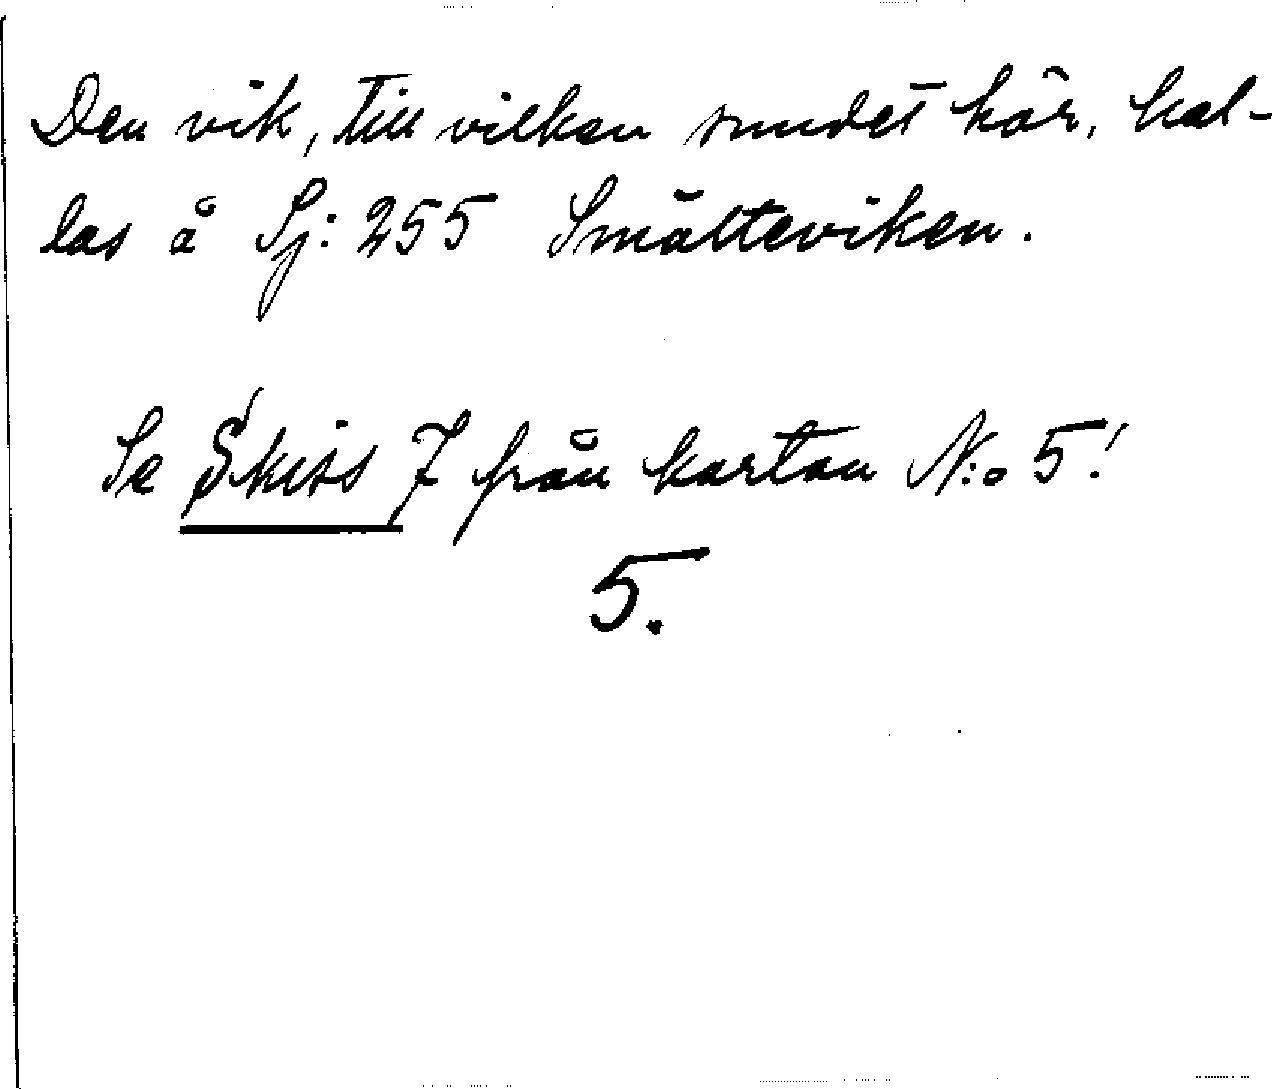 Den vik, till vilken sundet hör, kal-
las å Sj: 255 Smälteviken.
Se Skiss 7 från kartan N:o 5!
5.